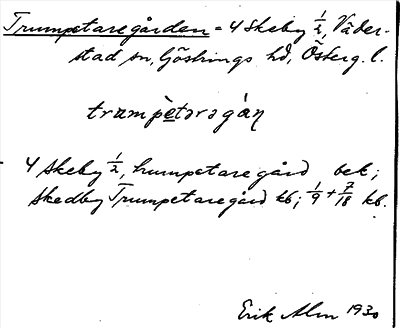 Trumpetaregården = 4 Skeby 1/2, Väder-
stad sn, Göstrings hd, Österg. l.
trumpètaragàn
4 Skeby 1/2, trumpetaregård bek;
Skedby Trumpetaregård kb; 1/9 + 7/18 kb.
Erik Alm 1930